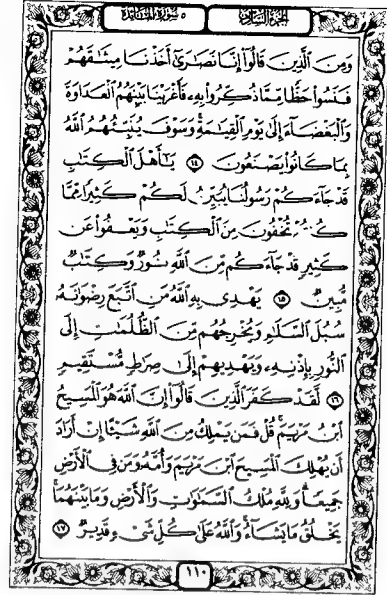 الجزء السادس ٥ سورة المائدة
وَمِنَ ٱلَّذِينَ قَالُوٓا۟ إِنَّا نَصَـٰرَىٰٓ أَخَذْنَا مِيثَـٰقَهُمْ
فَنَسُوا۟ حَظًّا مِّمَّا ذُكِّرُوا۟ بِهِۦ فَأَغْرَيْنَا بَيْنَهُمُ ٱلْعَدَاوَةَ
وَٱلْبَغْضَآءَ إِلَىٰ يَوْمِ ٱلْقِيَـٰمَةِ وَسَوْفَ يُنَبِّئُهُمُ ٱللَّهُ
بِمَا كَانُوا۟ يَصْنَعُونَ ١٤ يَـٰٓأَهْلَ ٱلْكِتَـٰبِ
قَدْ جَآءَكُمْ رَسُولُنَا يُبَيِّنُ لَكُمْ كَثِيرًا مِّمَّا
كُنتُمْ تُخْفُونَ مِنَ ٱلْكِتَـٰبِ وَيَعْفُوا۟ عَن
كَثِيرٍ قَدْ جَآءَكُم مِّنَ ٱللَّهِ نُورٌ وَكِتَـٰبٌ
مُّبِينٌ ١٥ يَهْدِى بِهِ ٱللَّهُ مَنِ ٱتَّبَعَ رِضْوَٰنَهُۥ
سُبُلَ ٱلسَّلَـٰمِ وَيُخْرِجُهُم مِّنَ ٱلظُّلُمَـٰتِ إِلَى
ٱلنُّورِ بِإِذْنِهِۦ وَيَهْدِيهِمْ إِلَىٰ صِرَٰطٍ مُّسْتَقِيمٍ
١٦ لَّقَدْ كَفَرَ ٱلَّذِينَ قَالُوٓا۟ إِنَّ ٱللَّهَ هُوَ ٱلْمَسِيحُ
ٱبْنُ مَرْيَمَ ۚ قُلْ فَمَن يَمْلِكُ مِنَ ٱللَّهِ شَيْـًٔا إِنْ أَرَادَ
أَن يُهْلِكَ ٱلْمَسِيحَ ٱبْنَ مَرْيَمَ وَأُمَّهُۥ وَمَن فِى ٱلْأَرْضِ
جَمِيعًا ۗ وَلِلَّهِ مُلْكُ ٱلسَّمَـٰوَٰتِ وَٱلْأَرْضِ وَمَا بَيْنَهُمَا ۚ
يَخْلُقُ مَا يَشَآءُ ۚ وَٱللَّهُ عَلَىٰ كُلِّ شَىْءٍ قَدِيرٌ ١٧
١١٠